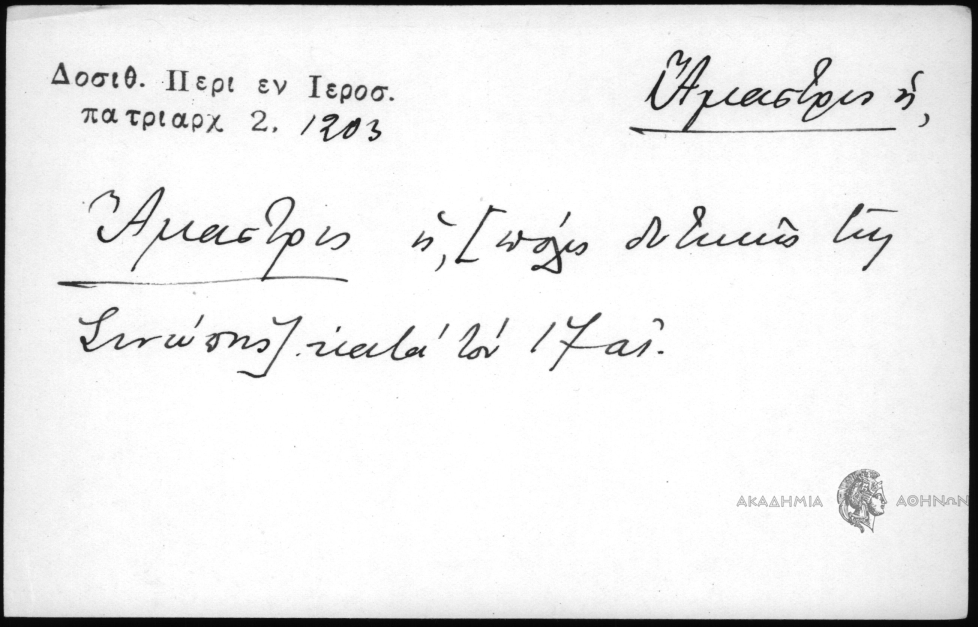 Δοσιθ. Περι εν Ιεροσ.
πατριαρχ 2. 1203
Ἄμαστρις ἡ,
Ἄμαστρις ἡ, [πόλις δυτικῶς τῆς
Σινώπης] κατά τόν 17 αἰ.
ΑΚΑΔΗΜΙΑ ΑΘΗΝΩΝ